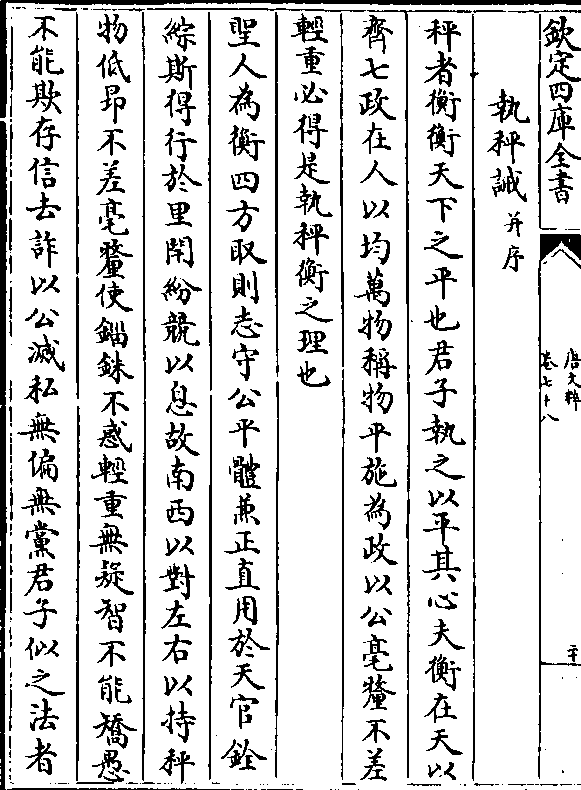 欽定四庫全書
唐文粹
卷七十八
二十
執秤誡并序
秤者衡衡天下之平也君子執之以平其心夫衡在天以
齊七政在人以均萬物稱物平施為政以公毫釐不差
輕重必得是執秤衡之理也
聖人為衡四方取則志守公平體兼正直用於天官銓
綜斯得行於里閈紛競以息故南西以對左右以持秤
物低昂不差毫釐使錙銖不惑輕重無疑智不能矯愚
不能欺存信去詐以公滅私無偏無黨君子似之法者